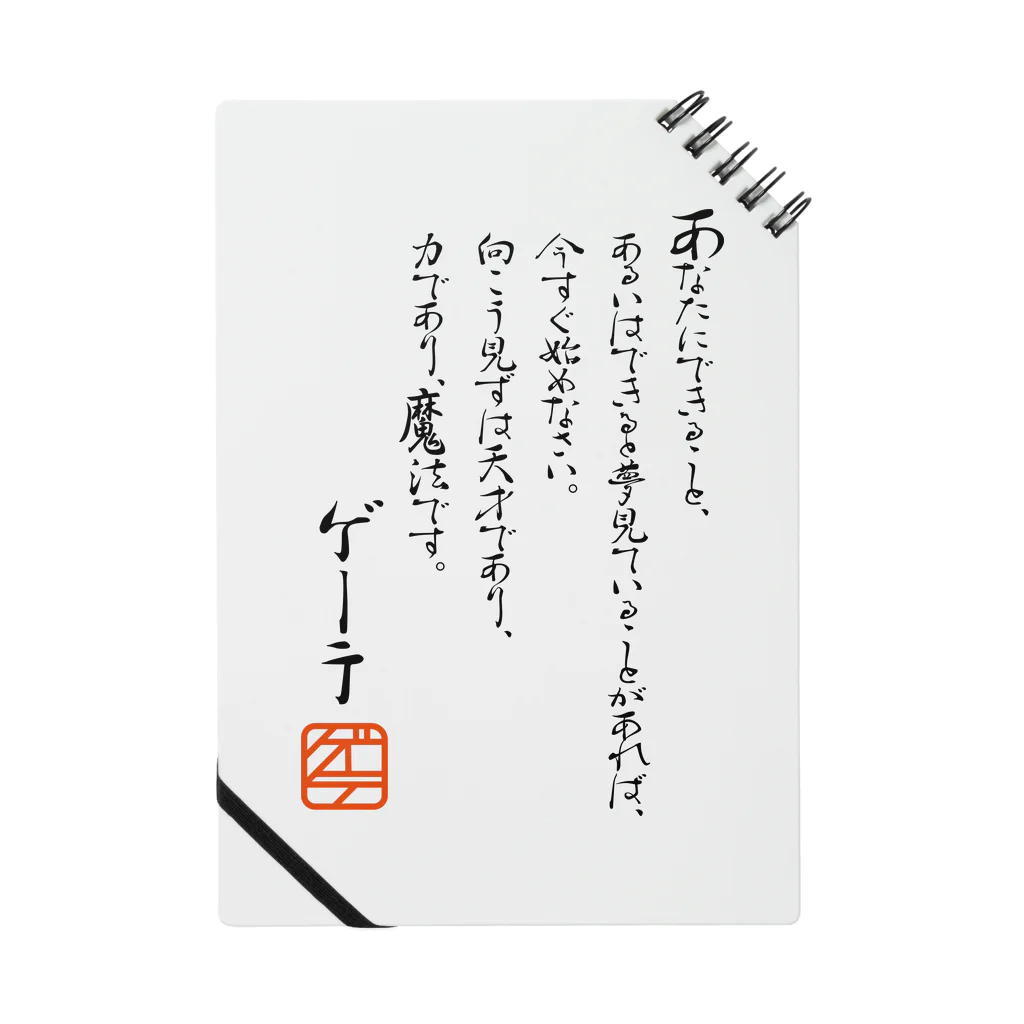 あなたにできること、
あるいはできると夢見ていることがあれば、
今すぐ始めなさい。
向こう見ずは天才であり、
力であり、魔法です。
ゲーテ